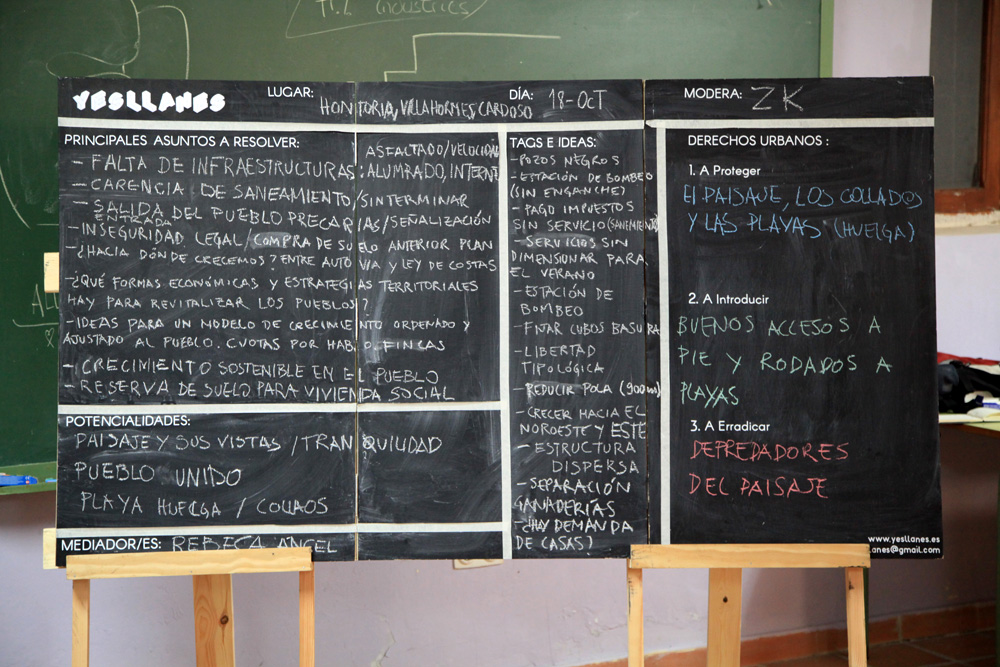 T.I. industries
YESLLANES
LUGAR:
HONTORIA, VILLAHORMES, CARDOSO
DÍA: 18-OCT
MODERA: ZK
PRINCIPALES ASUNTOS A RESOLVER:
ASFALTADO/VELOCIDAD
- FALTA DE INFRAESTRUCTURAS: ALUMRADO, INTERNET
- CARENCIA DE SANEAMIENTO/SIN TERMINAR
- SALIDA DEL PUEBLO PRECARIAS/SEÑALIZACIÓN
ENTRADA
- INSEGURIDAD LEGAL/COMPRA DE SUELO ANTERIOR PLAN
- ¿HACIA DÓNDE CRECEMOS? ENTRE AUTOVIA Y LEY DE COSTAS
- ¿QUÉ FORMAS ECONÓMICAS Y ESTRATEGIAS TERRITORIALES
HAY PARA REVITALIZAR LOS PUEBLOS?
- IDEAS PARA UN MODELO DE CRECIMIENTO ORDENADO Y
AJUSTADO AL PUEBLO. CUOTAS POR HAB, O. FINCAS
- CRECIMIENTO SOSTENIBLE EN EL PUEBLO
- RESERVA DE SUELO PARA VIVIENDA SOCIAL
POTENCIALIDADES:
PAISAJE Y SUS VISTAS / TRANQUILIDAD
PUEBLO UNIDO
PLAYA HUELGA / COLLAOS
MEDIADOR/ES: REBECA ANGEL
TAGS E IDEAS:
- POZOS NEGROS
- ESTACIÓN DE BOMBEO
(SIN ENGANCHE)
- PAGO IMPUESTOS
SIN SERVICIO (SANEMIENTO)
- SERVICIOS SIN
DIMENSIONAR PARA
EL VERANO
- ESTACIÓN DE
BOMBEO
- FIJAR CUBOS BASURA
- LIBERTAD
TIPOLÓGICA
- REDUCIR POLA (900m)
- CRECER HACIA EL
NOROESTE Y ESTE
- ESTRUCTURA
DISPERSA
- SEPARACIÓN
GANADERÍAS
- ¿HAY DEMANDA
DE CASAS?
DERECHOS URBANOS:
1. A Proteger
El PAISAJE, LOS COLLADOS
Y LAS PLAYAS (HUELGA)
2. A Introducir
BUENOS ACCESOS A
PIE Y RODADOS A
PLAYAS
3. A Erradicar
DEPREDADORES
DEL PAISAJE
www.yesllanes.es
lanes@gmail.com